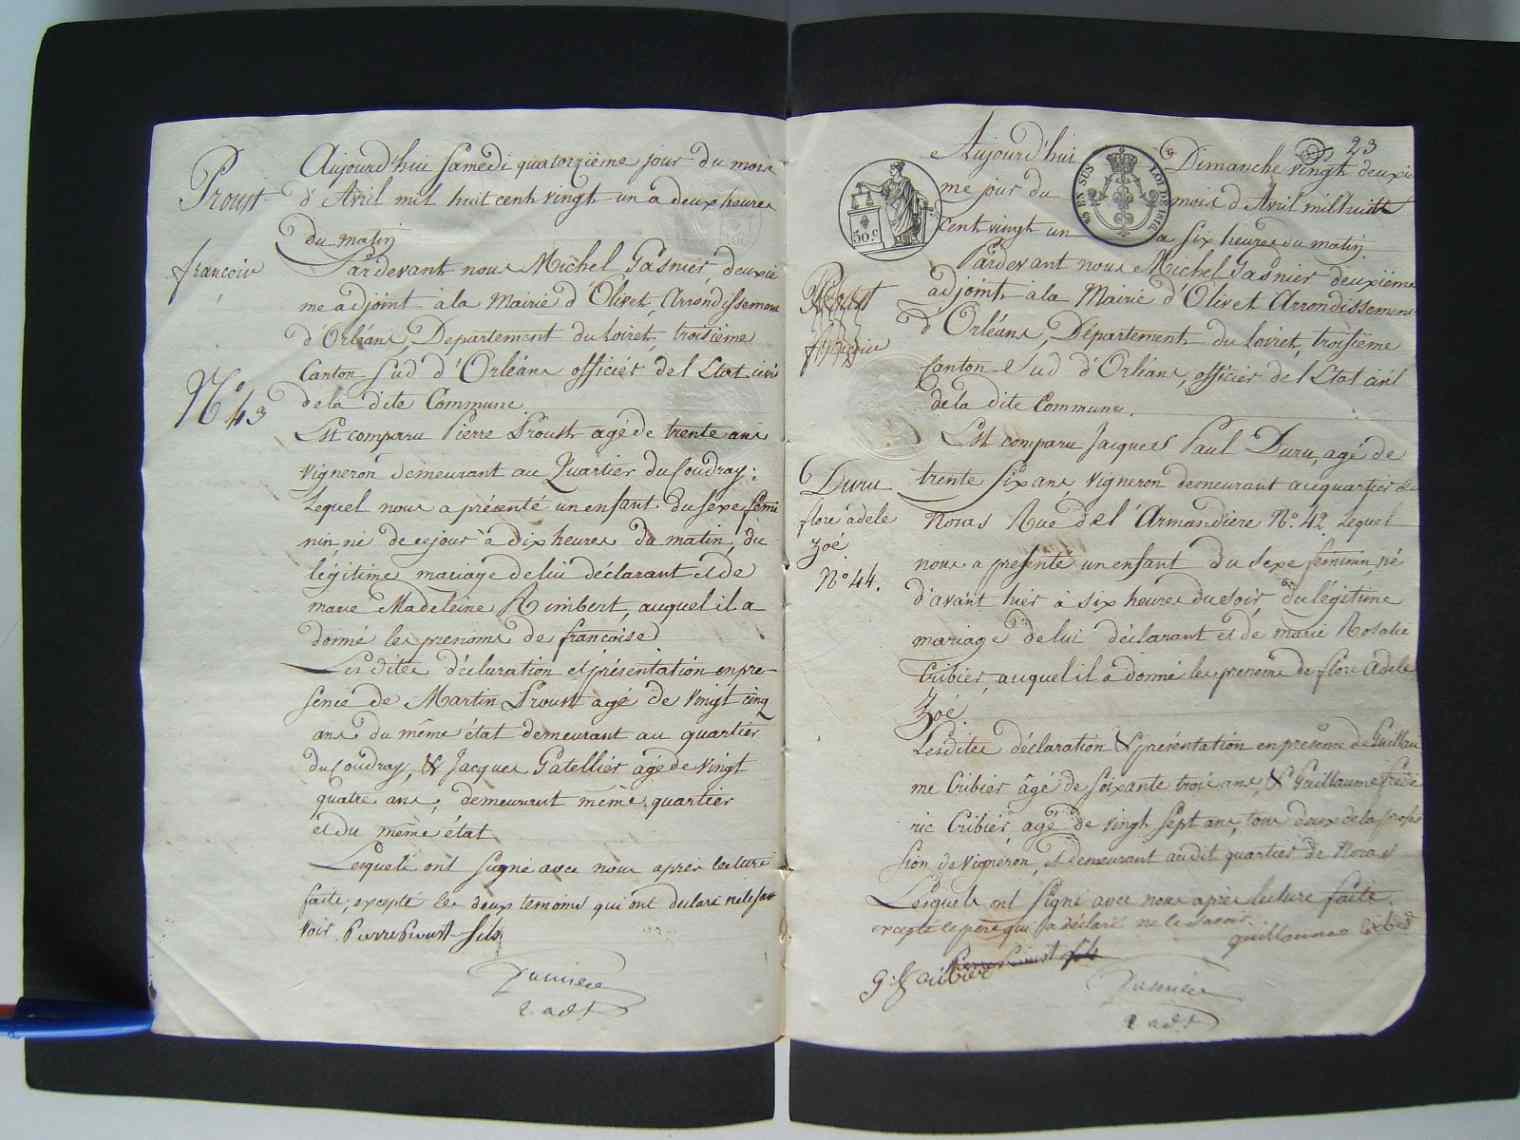 Proust
françoise
N.º 43
Aujourd'hui Samedi quatorzième jour du mois
d'Avril mil huit cent vingt un a deux heures
du matin
Pardevant nous Michel Gasnier deuxiè
me adjoint à la Mairie d'Olivet, Arrondissement
d'Orléans, Departement du Loiret, troisième
Canton Sud d'Orléans officier de l'Etat civil
de la dite Commune
Est comparu Pierre Proust agé de trente ans
vigneron demeurant au Quartier du Coudray;
Lequel nous a présenté un enfant du sexe fémi
nin né de ce jour à dix heures du matin, du
légitime mariage de lui déclarant et de
marie Madeleine Rimbert, auquel il a
donné les prenoms de françoise
Les dites déclaration et présentation en pre-
sence de Martin Proust agé de vingt cinq
ans du même état demeurant au quartier
du Coudray, & Jacques Gatellier agé de vingt
quatre ans, demeurant même quartier
et du même état
Lesquels ont signé avec nous après lecture
faite, excepté les deux temoins qui ont declaré ne le sa
voir. Pierre Proust fils
Gasnier
2. adt
23
Aujourd'hui Dimanche vingt deuxiè
me jour du mois d'Avril mil huit
cent vingt un a six heures du matin
50 c
EN SUS
LOI DE 1816
Pardevant nous Michel Gasnier deuxième
adjoint à la Mairie d'Olivet Arrondissement
d'Orléans, Département du Loiret, troisième
Canton Sud d'Orléans, officier de l'Etat civil
de la dite Commune.
Proust
françoise
Duru
flore adele
Zoé
N.º 44.
Est comparu Jacques Paul Duru, agé de
trente six ans vigneron demeurant au quartier de
Noras Rue de l'Armandiere N.º 42 Lequel
nous a présenté un enfant du sexe féminin, né
d'avant hier à six heures du soir, du légitime
mariage de lui déclarant et de marie Rosalie
Cribier, auquel il a donné les prenoms de flore Adele
Zoé.
Les dites déclaration & présentation en présence de Guillau
me Cribier âgé de soixante trois ans, & Guillaume fréde
ric Cribier agé de vingt sept ans, tous deux de la profes
sion de vigneron, et demeurant audit quartier de Noras
Lesquels ont signé avec nous après lecture faite
excepté le père qui a déclaré ne le savoir
guillaume cribier
Pierre Proust fils
G. f cribier
Gasnier
2 adt